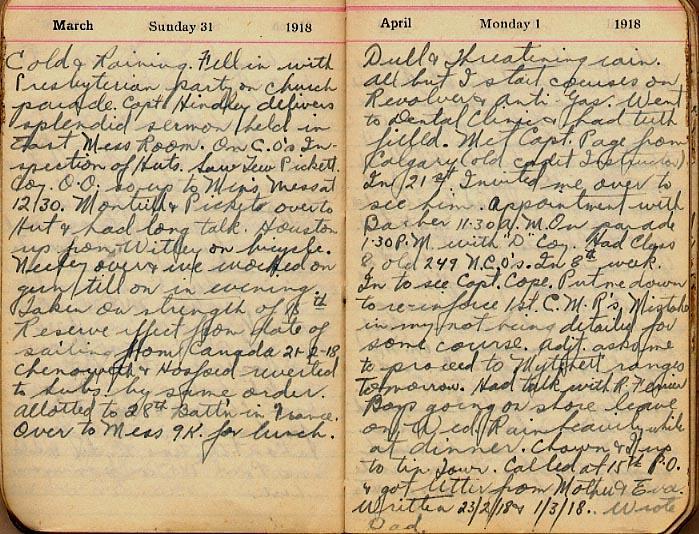 March Sunday 31 1918
Cold & Raining. Fell in with
Presbyterian party on church
parade. Capt. Hindley delivers
splendid sermon held in
East Mess Room. On C.O's In-
spection of Huts. Saw Lew Pickett.
Coy. O.O. so up to Men's Mess at
12/30. & Pickets over to
Hut & had long talk. Houston
up from Witley on bicycle.
over & we worked on
gun till on in evening.
Taken on strength of 18th
Reserve effect from date of
sailing from Canada 21-2-18
Chenoweth & reverted
to subs. by same order.
Allotted to 28th Battn in France.
Over to Mess 9K. for lunch.
April Monday 1 1918
Dull & Threatening rain.
All but I start courses on
Revolver & Anti-Gas. Went
to Dental Clinic & had tuth
filled. Met Capt. Page from
Calgary (old cadit Instructor)
In 21st. Invited me over to
see him. Appointment with
11-30 A.M. On parade
1:30 P.M. with "D" Coy. Had Class
8 old 249 N.C.O's. In 8th week.
In to see Capt. Cope. Put me down
to re-inforce 1st. C.M.R's, Mistake
in my not being detailed for
some course. Adj. asks me
to proceed to Mytchett ranges
tomorrow. Had talk with R.
Boys going on shore leave
on Wed. Rain heavily while
at dinner. Chown & I up
to tin Town. Called at 15th P.O.
& got letter from Mother & Eva.
Written 23/2/18 & 1/3/18. Wrote
Dad.